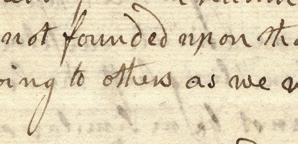 not founded upon tha
oing to others as we w